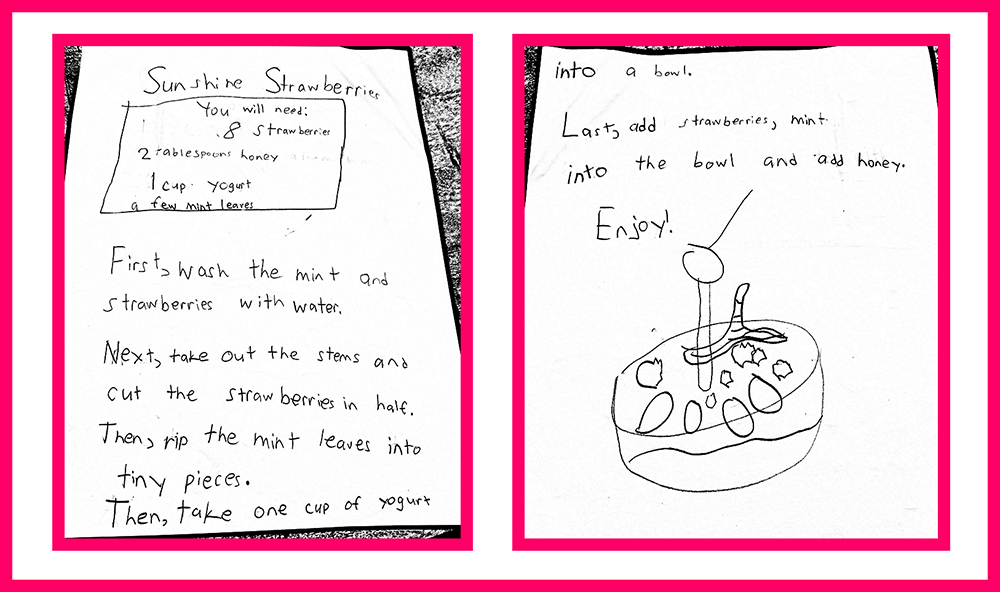 Sunshine Strawberries
You will need:
8 strawberries
2 tablespoons honey
1 cup yogurt
a few mint leaves
First, wash the mint and
strawberries with water.
Next, take out the stems and
cut the strawberries in half.
Then, rip the mint leaves into
tiny pieces.
Then, take one cup of yogurt
into a bowl.
Last, add strawberries, mint
into the bowl and add honey.
Enjoy!